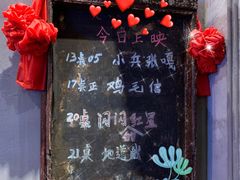 今日上映
13奌05 小兵张嘎
17奌正 鸡毛信
20奌 闪闪红星
21奌 地道战